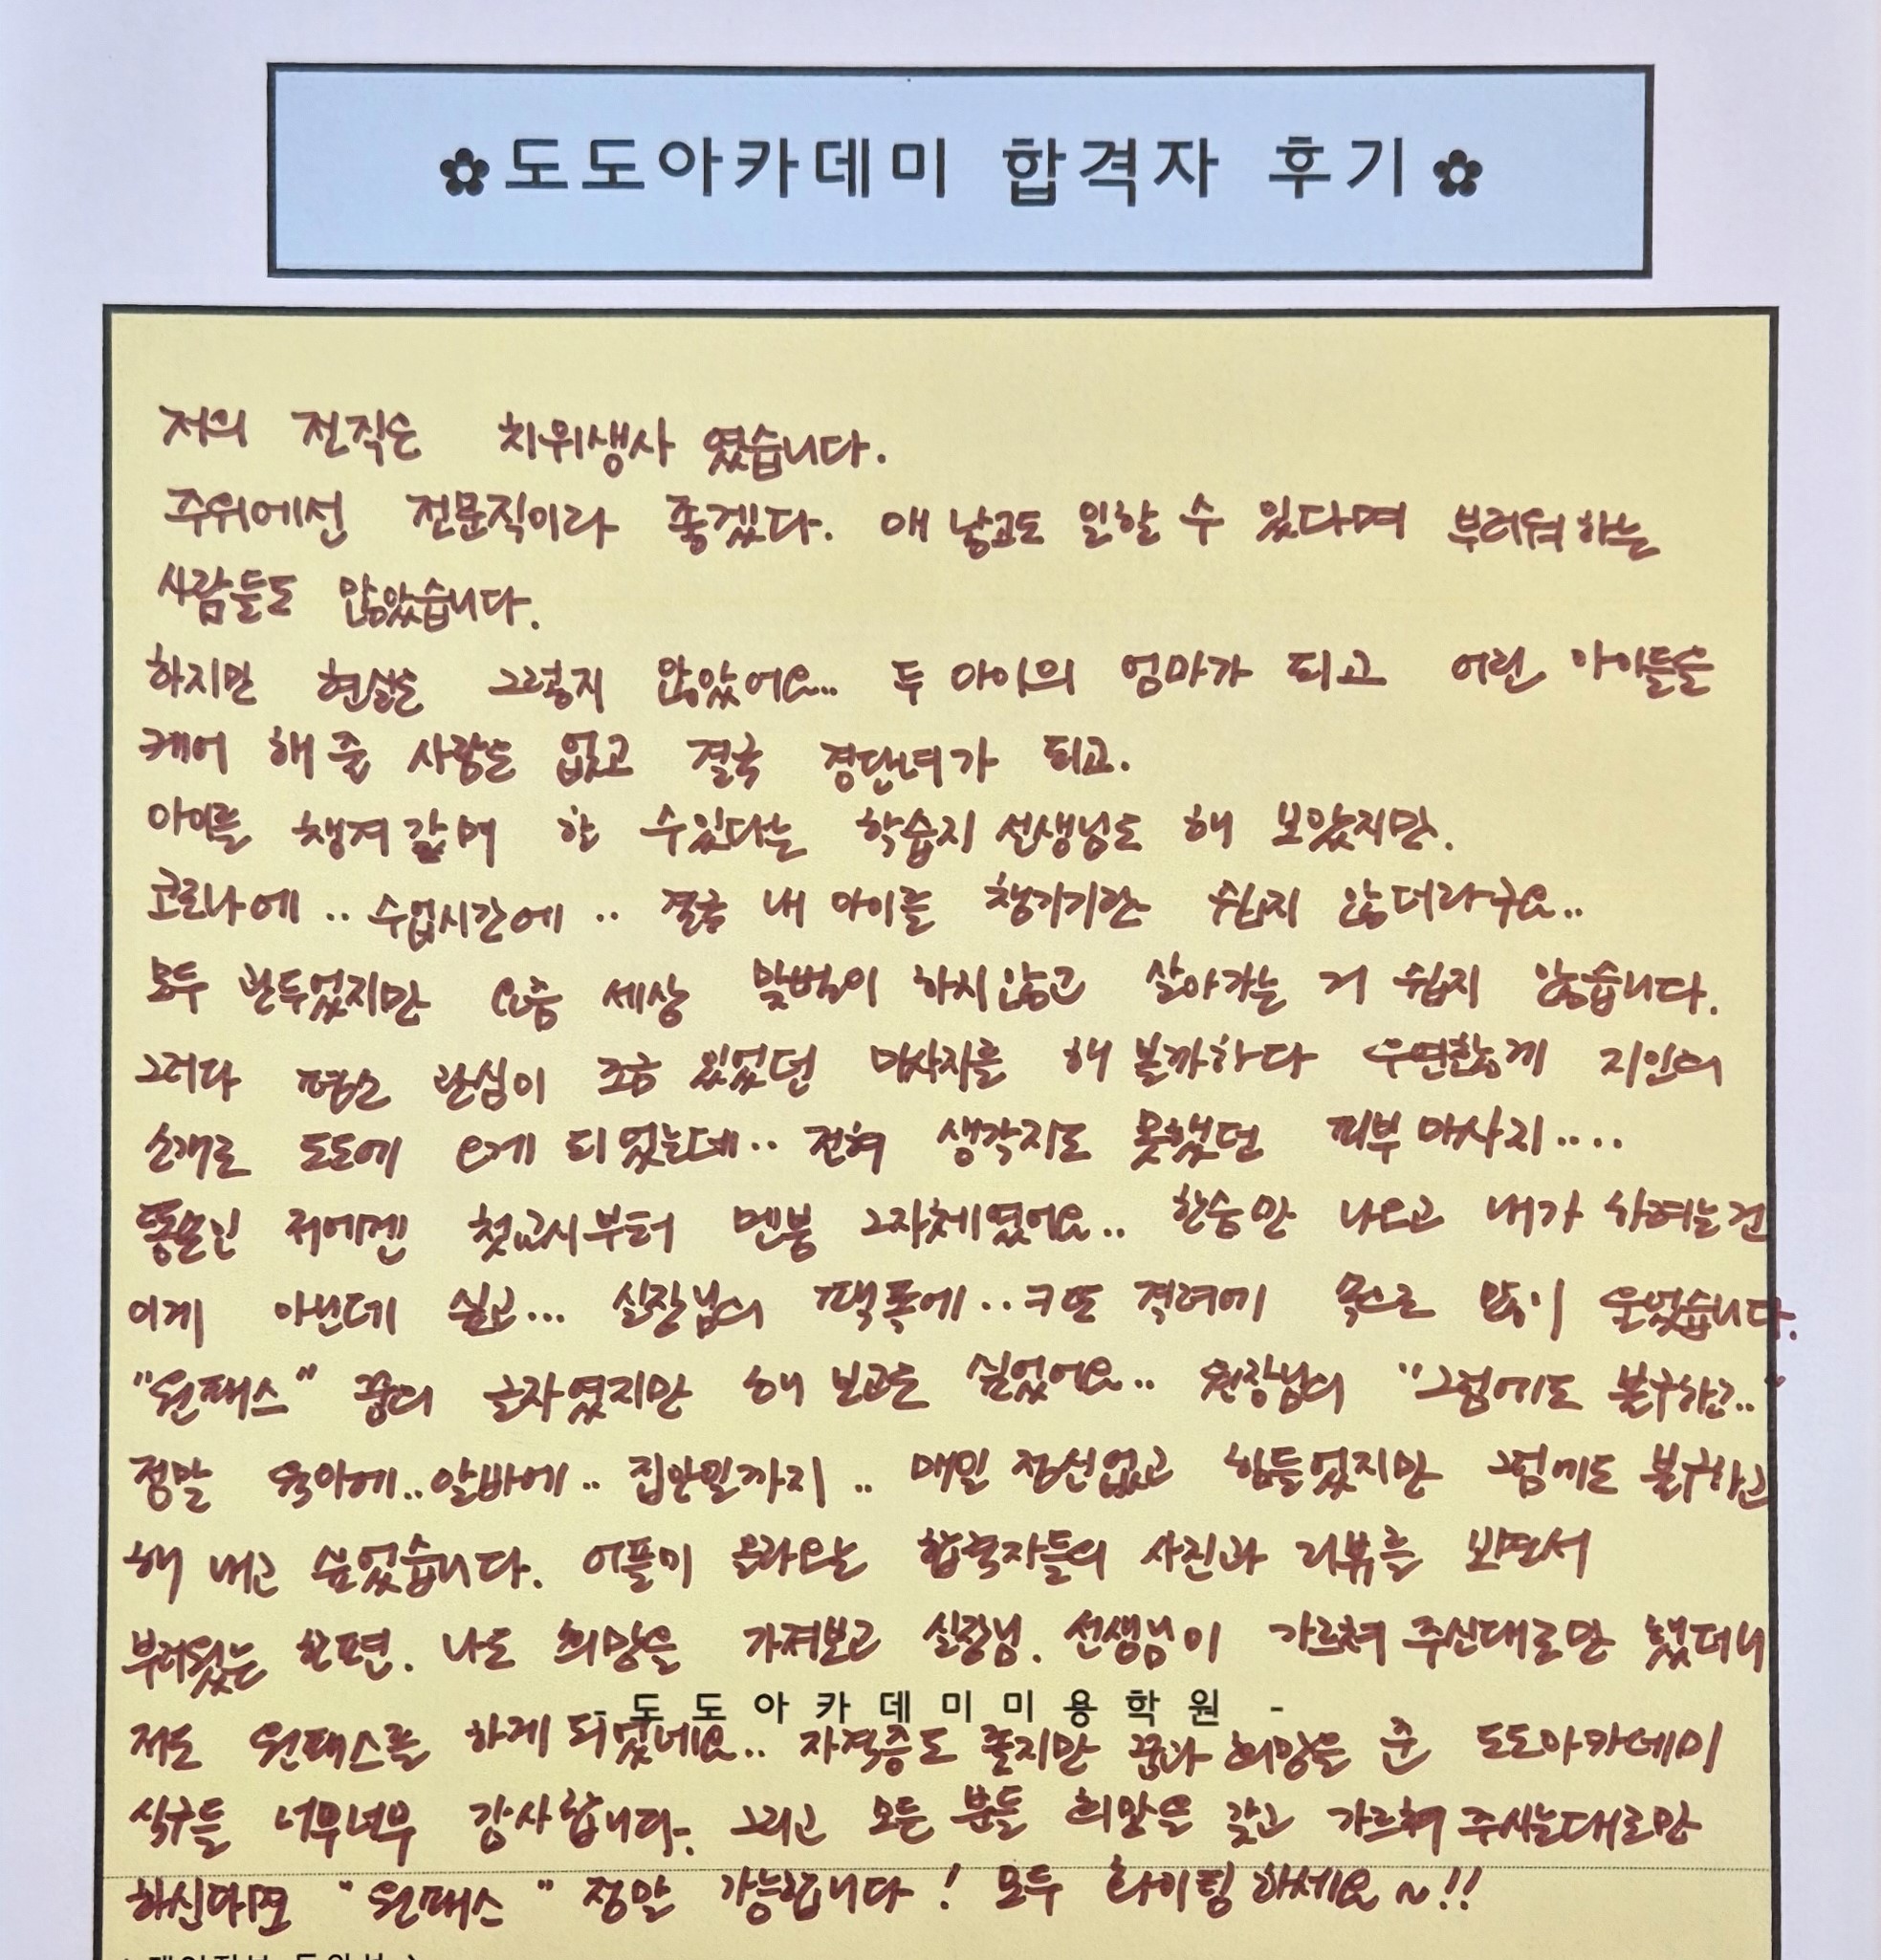 ✿도도아카데미 합격자 후기✿
저의 전직은 치위생사 였습니다.
주위에선 전문직이라 좋겠다. 애 낳고도 일할 수 있다며 부러워하는
사람들도 많았습니다.
하지만 현실은 그렇지 않았어요... 두 아이의 엄마가 되고 어린 아이들을
케어 해 줄 사람은 없고 결국 경단녀가 되고.
아이를 챙겨 갈며 할 수있다는 학습지 선생님도 해 보았지만.
코로나에 .. 수업시간에 .. 결국 내 아이를 챙기기란 쉽지 않더라구요..
모두 관두었지만 요즘 세상 맞벌이 하지않고 살아가는 거 쉽지 않습니다.
그러다 평소 관심이 조금 있었던 마사지를 해 볼까하다 우연함께 지인의
소개로 도도에 오게 되었는데.. 전혀 생각지도 못했던 피부 마사지....
똥손인 저에겐 첫교시부터 멘붕 그자체였어요.. 한숨만 나오고 내가 하려는건
이게 아닌데 싶고... 실장님의 팩폭에.. 또 격려에 속으로 많이 울었습니다.
"원패스" 꿈의 글자였지만 해 보고는 싶었어요.. 원장님의 "그럼에도 불구하고.."
정말 육아에.. 알바에.. 집안일까지 .. 매일 정신없고 힘들었지만 그럼에도 불구하고
해 내고 싶었습니다. 어플에 올라오는 합격자들의 사진과 리뷰를 보면서
부러웠는 한편. 나도 희망을 가져보고 실장님. 선생님이 가르쳐 주신대로만 했더니
- 도도아카데미미용학원 -
저도 원패스를 하게 되었네요.. 자격증도 좋지만 꿈과 희망을 준 도도아카데미
식구들 너무너무 감사합니다. 그리고 모든 분들 희망을 갖고 가르쳐 주시는대로만
하신다면 "원패스" 정말 가능합니다! 모두 화이팅 하세요~!!